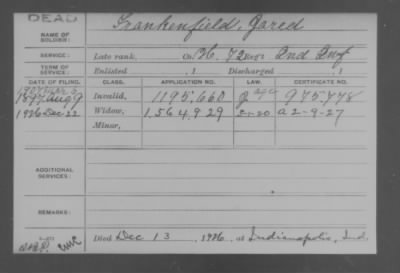 DEAD
NAME OF SOLDIER: Frankenfield, Jared
SERVICE: Late rank, Co H. 72 Regt Ind Inf
TERM OF SERVICE: Enlisted , 1 Discharged , 1
DATE OF FILING. CLASS. APPLICATION NO. LAW. CERTIFICATE NO.
1897 Aug 9 Invalid, 1195.660 975.778
1926 Dec 22 Widow, 1.564.929 5-1-20 a 2-9-27
Minor,
ADDITIONAL SERVICES:
REMARKS:
Died Dec 13, 1926, at Indianapolis, Ind.